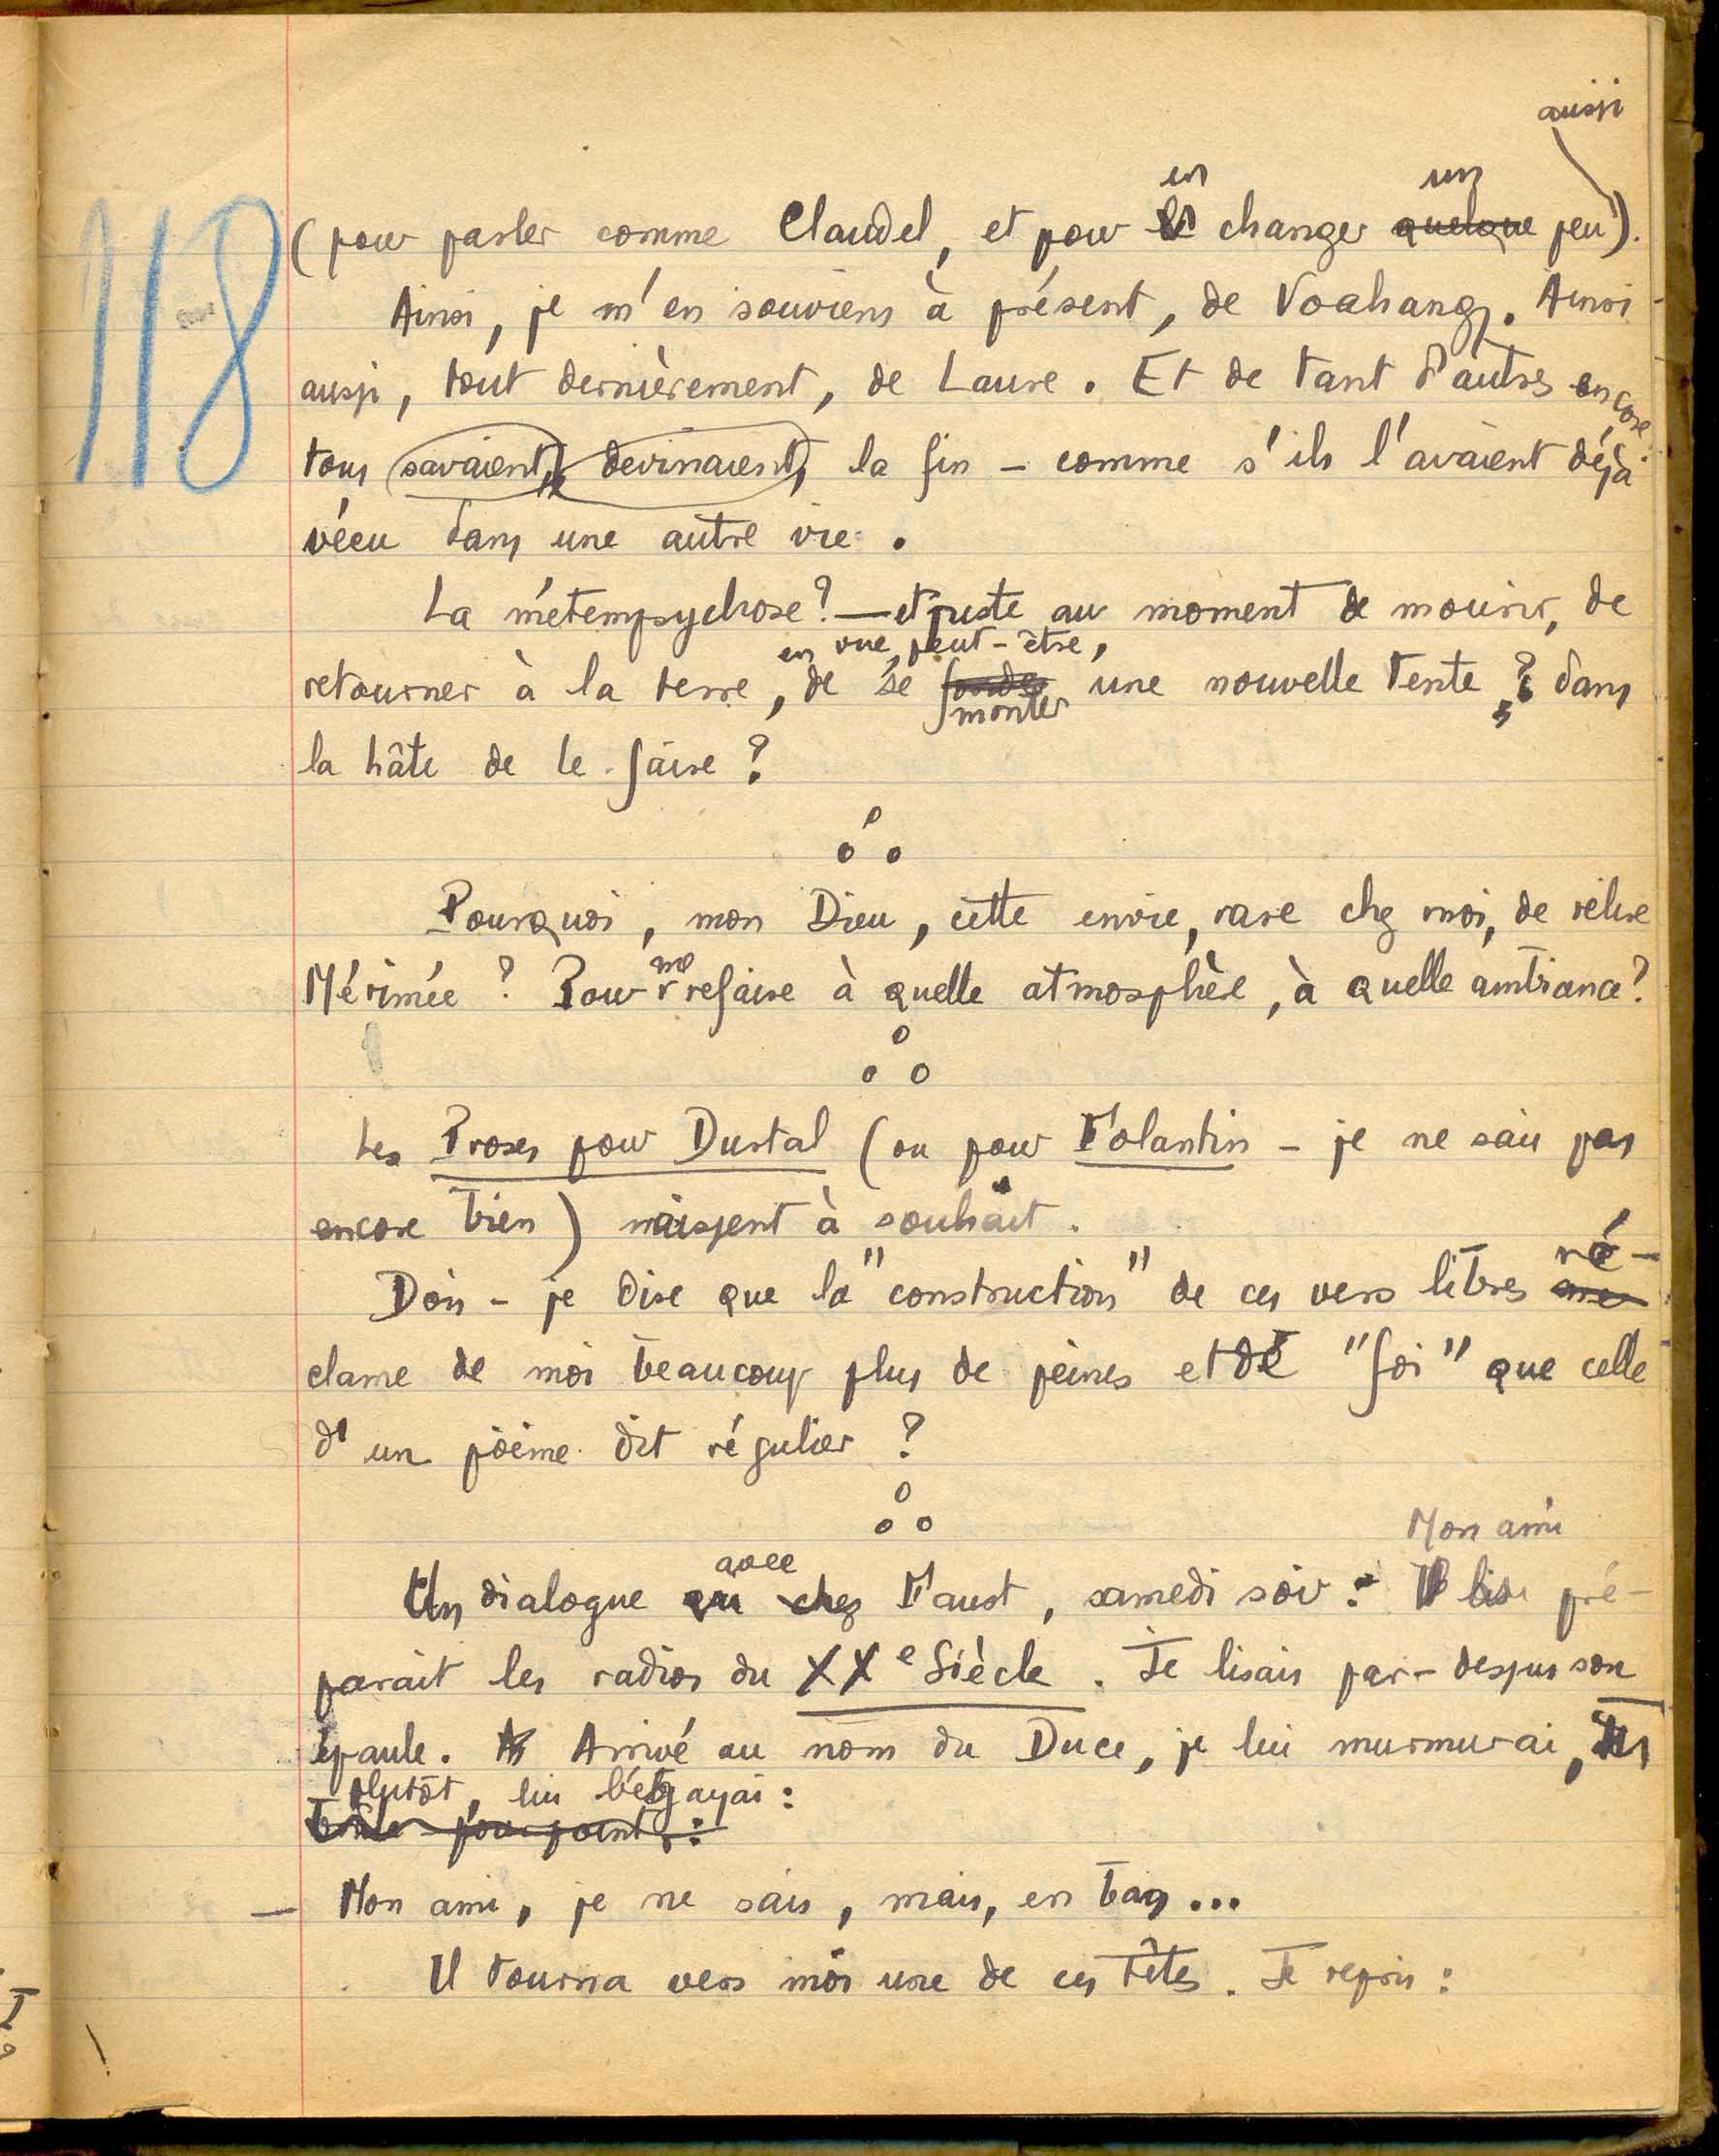 118
aussi
en un
(pour parler comme Claudel, et pour changer quelque peu).
Ainsi, je m'en souviens à présent, de Voahangy. Ainsi
aussi, tout dernièrement, de Laure. Et de tant d'autres encore.
tous savaient, devinaient, la fin – comme s'ils l'avaient déjà
vécu dans une autre vie.
La métempsychose? — et juste au moment de mourir, de
en vue, peut-être,
retourner à la terre, de se fonder une nouvelle tente, ? dans
monter
la hâte de le faire ?
Pourquoi, mon Dieu, cette envie, rare chez moi, de relire
me
Mérimée ? Pour refaire à quelle atmosphère, à quelle ambiance ?
Les Proses pour Durtal (ou pour Folantin – je ne sais pas
encore bien) naissent à souhait.
ré-
Dois-je dire que la "construction" de ces vers libres
clame de moi beaucoup plus de peines et de "foi" que celle
d'un poème dit régulier ?
Mon ami
avec
Un dialogue chez Faust, samedi soir : Il pré-
parait les radios du XXe Siècle. Je lisais par-dessus son
épaule. Arrivé au nom du Duce, je lui murmurai,
plutôt, lui bégayai :
pourpoint :
— Mon ami, je ne sais, mais, en bas...
Il tourna vers moi une de ces têtes. Je repris :